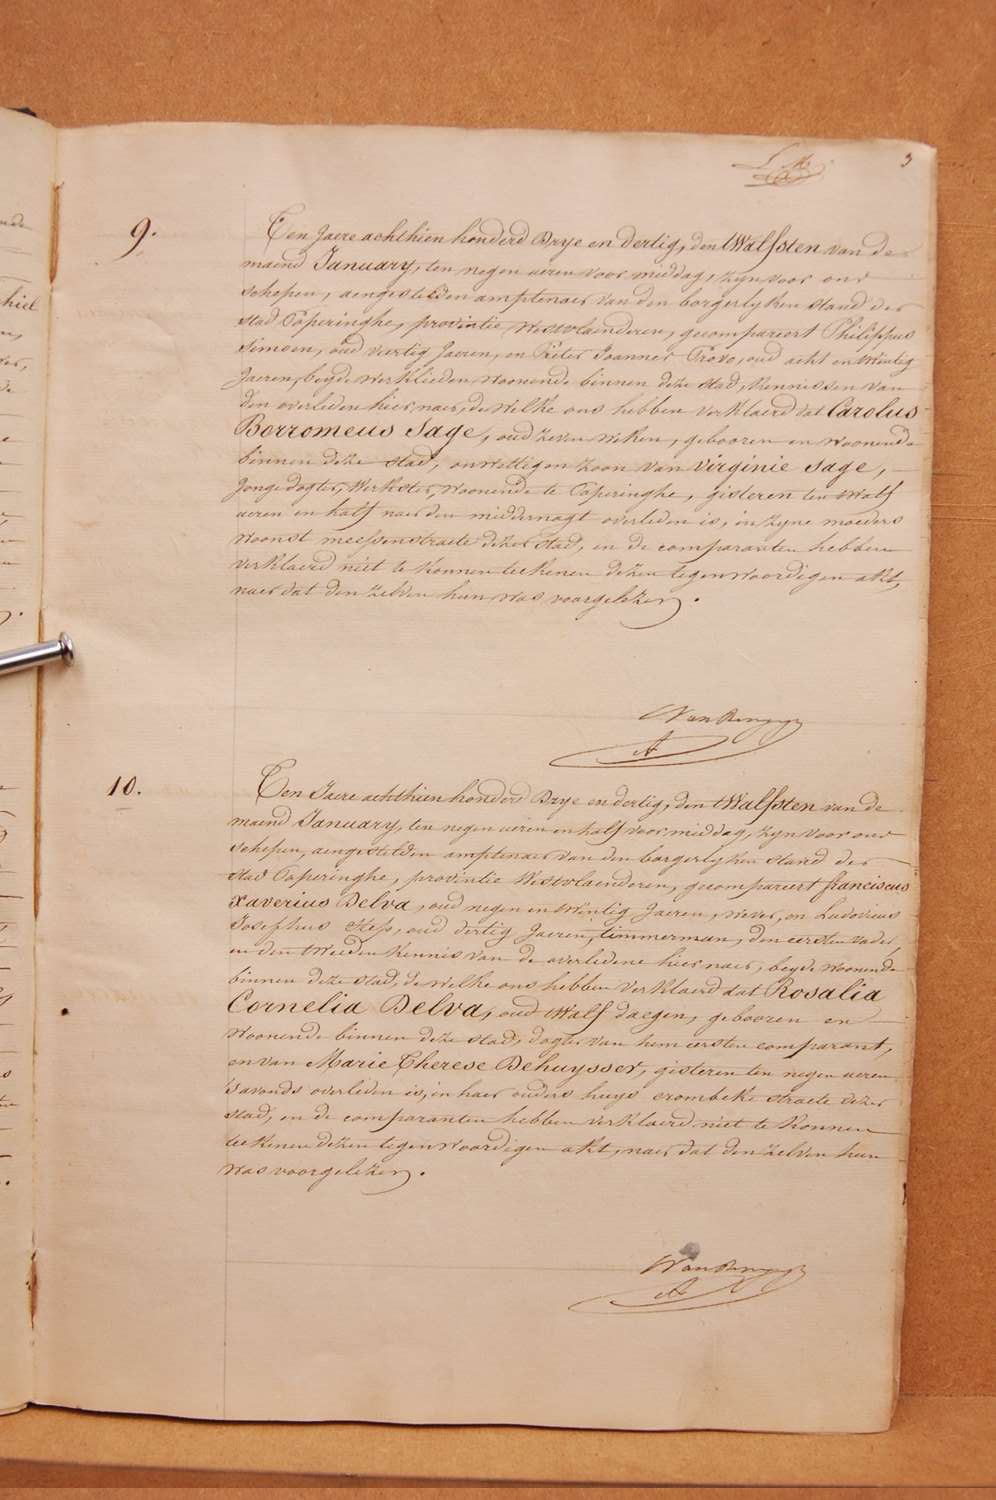 3
9.
Ten Jaere achthien honderd Drye en dertig, den twalfsten van de
maend January, ten negen ueren voor middag, zyn voor ons
schepen, aengestelden amptenaer van den borgerlyken stand der
stad Poperinghe, provintie Westvlaenderen, gecompareert Philippus
Simoen, oud veertig Jaeren, en Pieter Joannes Provo, oud acht en twintig
Jaeren, beyde werklieden woonende binnen deze stad, kennissen van
den overleden hier naer, de welke ons hebben verklaerd dat Carolus
Borromeus Sage, oud zeven weken, gebooren en woonende
binnen deze stad, onwettigen zoon van Virginie Sage,
Jonge dogter, werkster, woonende te Poperinghe, gisteren ten twalf
ueren en half naer den middernagt overleden is, in zyne moeders
woonst meessenstraete dezer stad, en de comparanten hebben
verklaerd niet te konnen teekenen dezen tegenwoordigen akt,
naer dat den zelven hun was voorgelezen.
10.
Ten Jaere achthien honderd Drye en dertig, den twalfsten van de
maend January, ten negen ueren en half voor middag, zyn voor ons
schepen, aengestelden amptenaer van den borgerlyken stand der
stad Poperinghe, provintie Westvlaenderen, gecompareert franciscus
xaverius Delva, oud negen en twintig Jaeren, wever, en Ludovicus
Josephus oud dertig Jaeren, timmerman, den eersten vader,
en den tweeden kennis van de overledene hier naer, beyde woonende
binnen deze stad, de welke ons hebben verklaerd dat Rosalia
Cornelia Delva, oud twalf daegen, gebooren en
woonende binnen deze stad, dogter van hem eersten comparant,
en van Marie Therese Dehuysser, gisteren ten negen ueren
's avonds overleden is, in haer ouders huys crombeke straete dezer
stad, en de comparanten hebben verklaerd niet te konnen
teekenen dezen tegenwoordigen akt, naer dat den zelven hun
was voorgelezen.